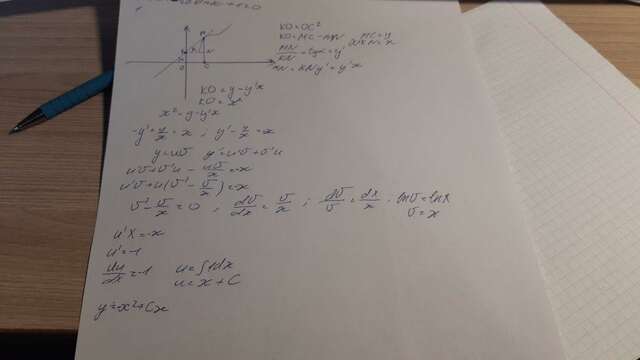 KO=OC²
KO=MC-MN MC=y
MN/KN=tgα=y' OC=KN=x
MN=KNy'=y'x
KO=y-y'x
KO=x²
x²=y-y'x
-y'+y/x=x ; y'-y/x=-x
y=uv y'=u'v+v'u
u'v+v'u-uv/x=-x
u'v+u(v'-v/x)=-x
v'-v/x=0 ; dv/dx=v/x ; dv/v=dx/x . lnv=lnx
v=x
u'x=-x
u'=-1
du/dx=-1 u=∫-1dx
u=-x+C
y=-x²+Cx